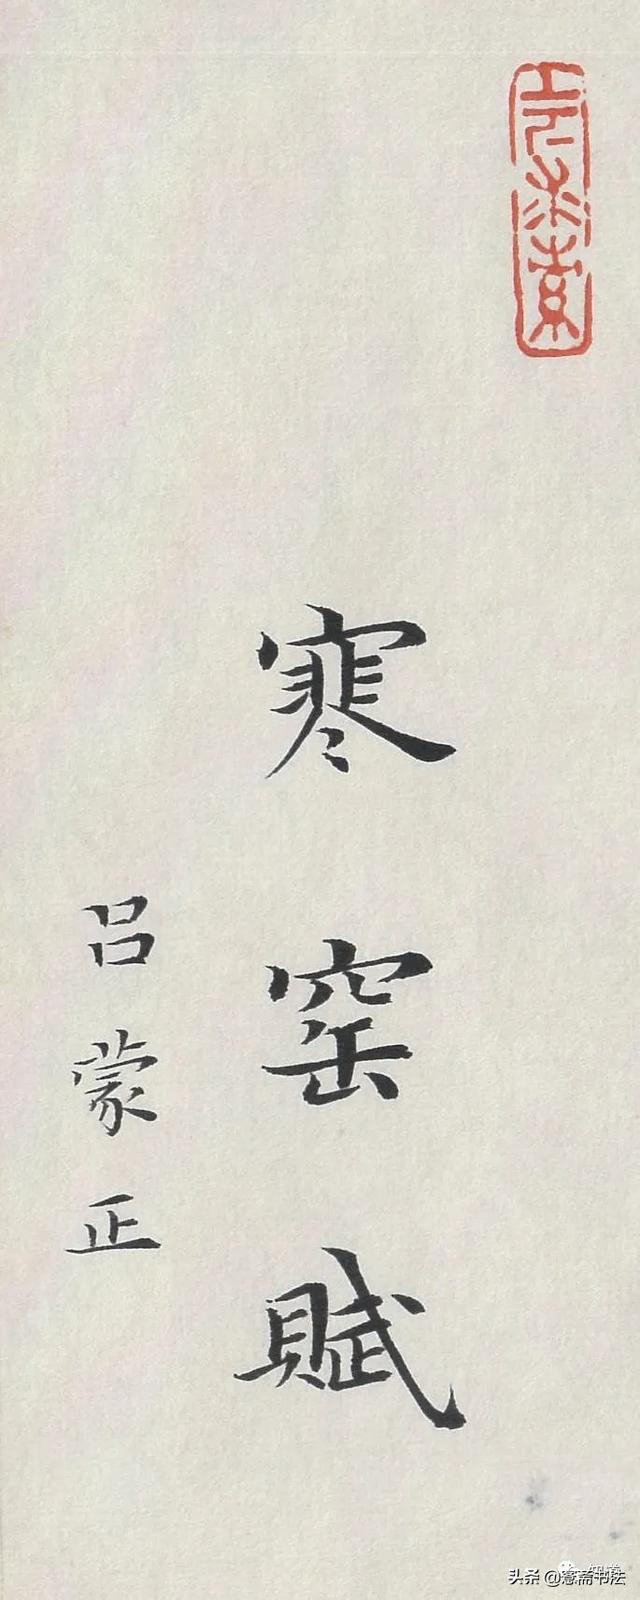 寒窑賦
吕蒙正
头条 @憲斋书法